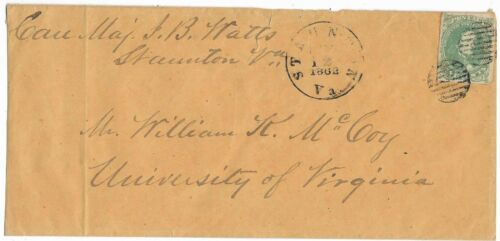 Care Maj. J. B. Watts
Staunton Va
STAUNTON
12
1862
Va.
Mr. William K. McCoy
University of Virginia